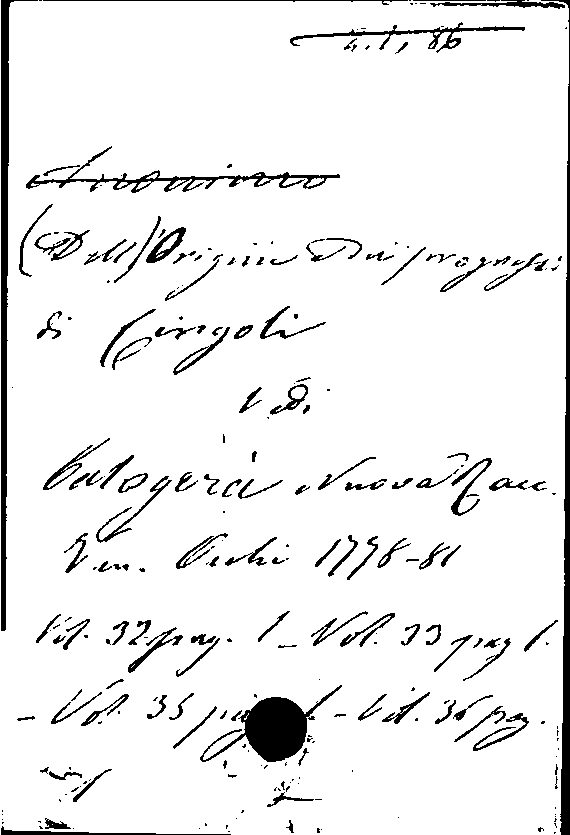 a.1, 86
Anonimo
(Dell') Origine e Dei progressi
di Cingoli
Vedi
Calogerà Nuova Racc.
Ven. Occhi 1778-81
Vol. 32 pag. 1 - Vol. 33 pag 1.
- Vol. 35 pag 1 - Vol. 36 pag.